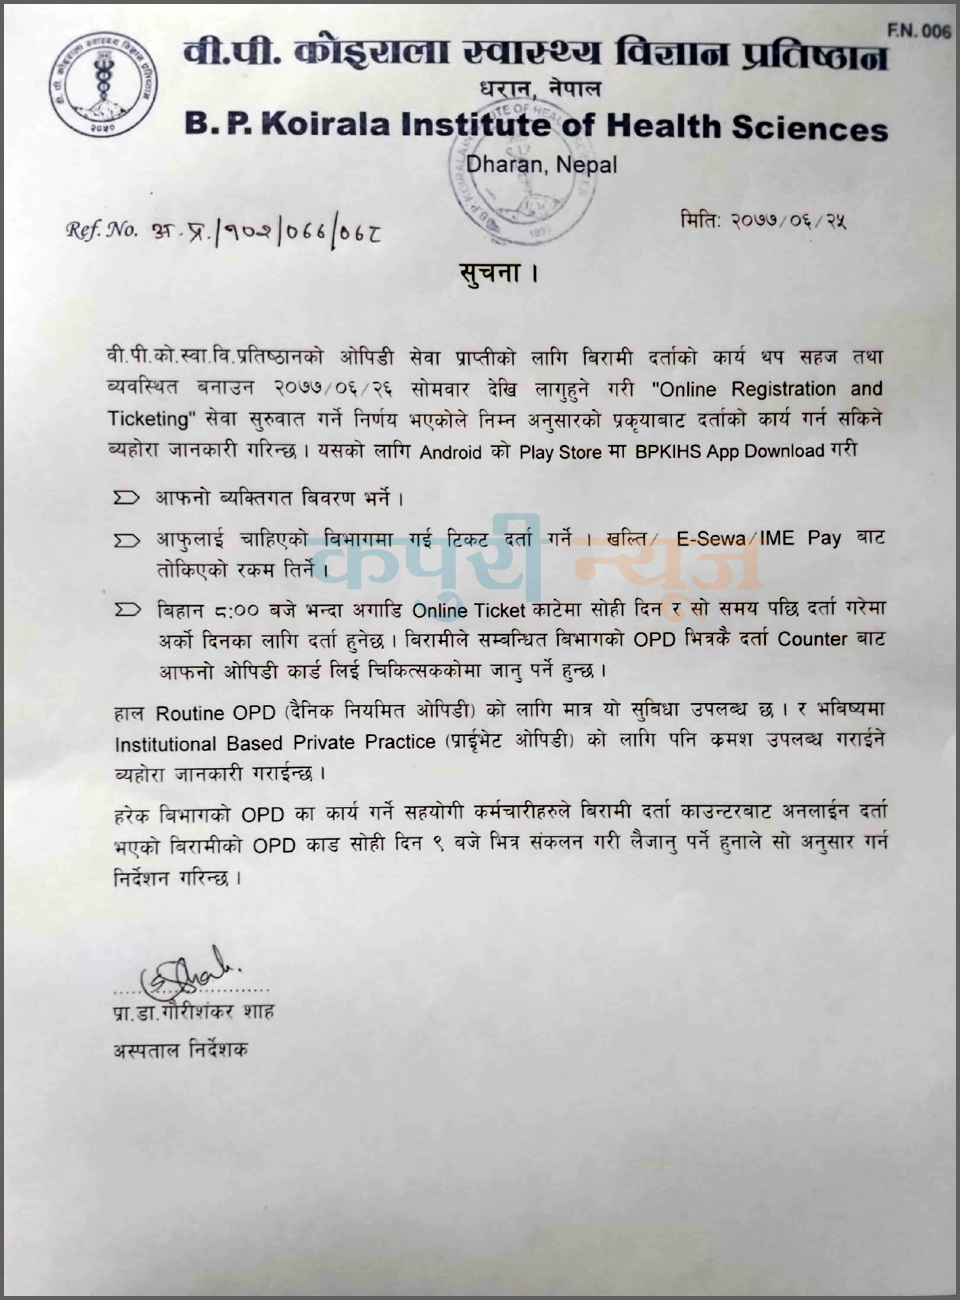 F.N. 006
वी.पी. कोइराला स्वास्थ्य विज्ञान प्रतिष्ठान
धरान, नेपाल
B. P. Koirala Institute of Health Sciences
Dharan, Nepal
Ref. No. अ.प्र./१०२/०७७/०७८
मिति: २०७७/०६/२५
सुचना ।
वी.पी.को.स्वा.वि.प्रतिष्ठानको ओपिडी सेवा प्राप्तीको लागि बिरामी दर्ताको कार्य थप सहज तथा
ब्यवस्थित बनाउन २०७७/०६/२६ सोमवार देखि लागुहुने गरी "Online Registration and
Ticketing" सेवा सुरुवात गर्ने निर्णय भएकोले निम्न अनुसारको प्रकृयाबाट दर्ताको कार्य गर्न सकिने
ब्यहोरा जानकारी गरिन्छ । यसको लागि Android को Play Store मा BPKIHS App Download गरी
आफनो ब्यक्तिगत बिवरण भर्ने ।
आफुलाई चाहिएको बिभागमा गई टिकट दर्ता गर्ने । खल्ति/ E-Sewa/IME Pay बाट
तोकिएको रकम तिर्ने ।
बिहान ८:०० बजे भन्दा अगाडि Online Ticket काटेमा सोही दिन र सो समय पछि दर्ता गरेमा
अर्को दिनका लागि दर्ता हुनेछ । बिरामीले सम्बन्धित बिभागको OPD भित्रकै दर्ता Counter बाट
आफनो ओपिडी कार्ड लिई चिकित्सककोमा जानु पर्ने हुन्छ ।
हाल Routine OPD (दैनिक नियमित ओपिडी) को लागि मात्र यो सुबिधा उपलब्ध छ । र भबिष्यमा
Institutional Based Private Practice (प्राईभेट ओपिडी) को लागि पनि क्रमश उपलब्ध गराईने
ब्यहोरा जानकारी गराईन्छ ।
हरेक बिभागको OPD का कार्य गर्ने सहयोगी कर्मचारीहरुले बिरामी दर्ता काउन्टरबाट अनलाईन दर्ता
भएको बिरामीको OPD काड सोही दिन ९ बजे भित्र संकलन गरी लैजानु पर्ने हुनाले सो अनुसार गर्न
निर्देशन गरिन्छ ।
कपुरी न्यूज
प्रा.डा.गौरीशंकर शाह
अस्पताल निर्देशक